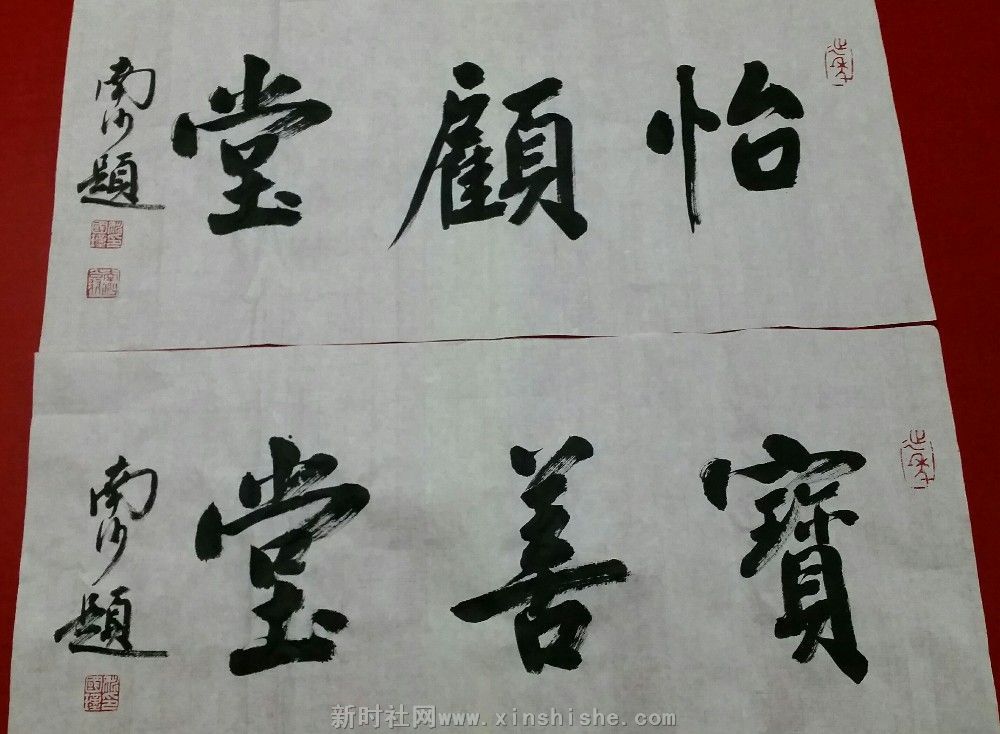 怡顧堂
南沙題
寶善堂
南沙題
新时社网www.xinshishe.com